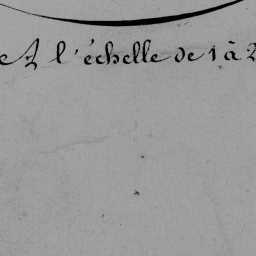 l'échelle de 1 à 2